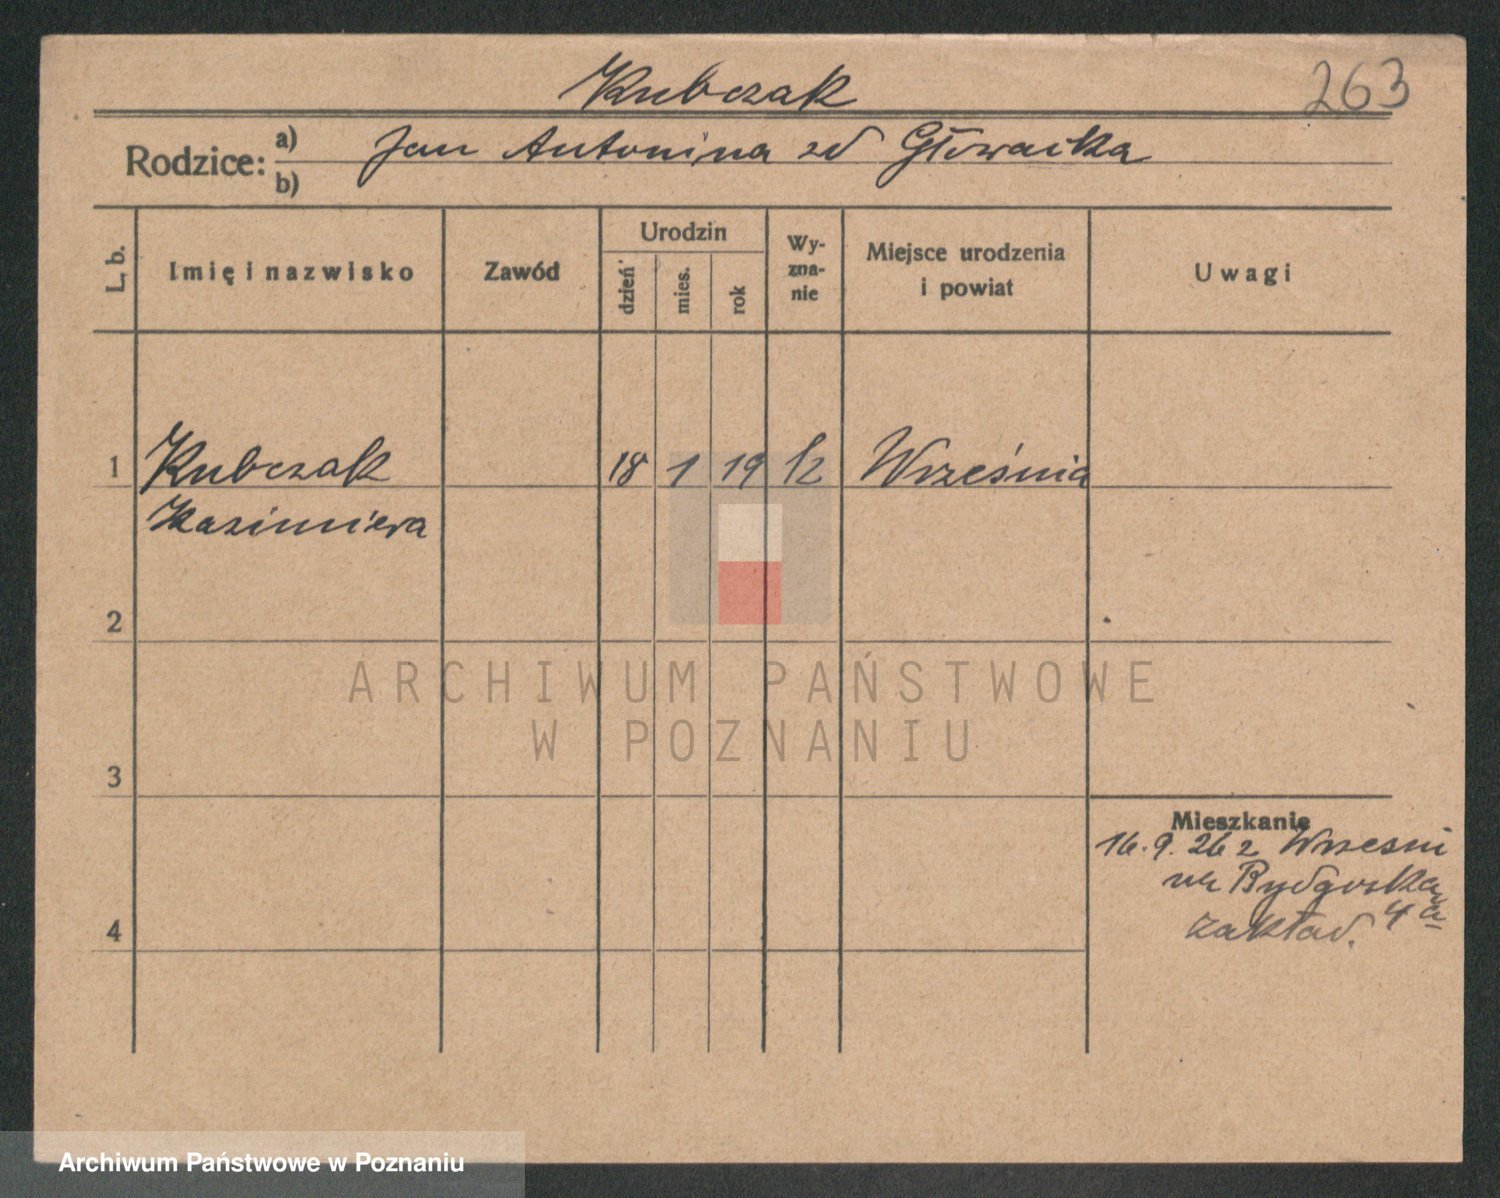 Kubczak
263
Rodzice: a) Jan Antonina zd Głowacka
b)
L. b.
Imię i nazwisko
Zawód
Urodzin
dzień
mies.
rok
Wy-
zna-
nie
Miejsce urodzenia
i powiat
Uwagi
1 Kubczak 18 1 19 Września
Kazimiera
2
3
4
Mieszkanie
16. 9. 26 z Wrzesni
Bydgoska
4a
zakład.
ARCHIWUM PAŃSTWOWE
W POZNANIU
Archiwum Państwowe w Poznaniu